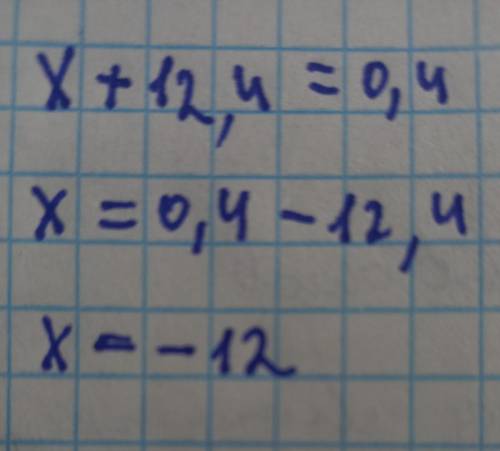 x + 12,4 = 0,4
x = 0,4 - 12,4
x = -12